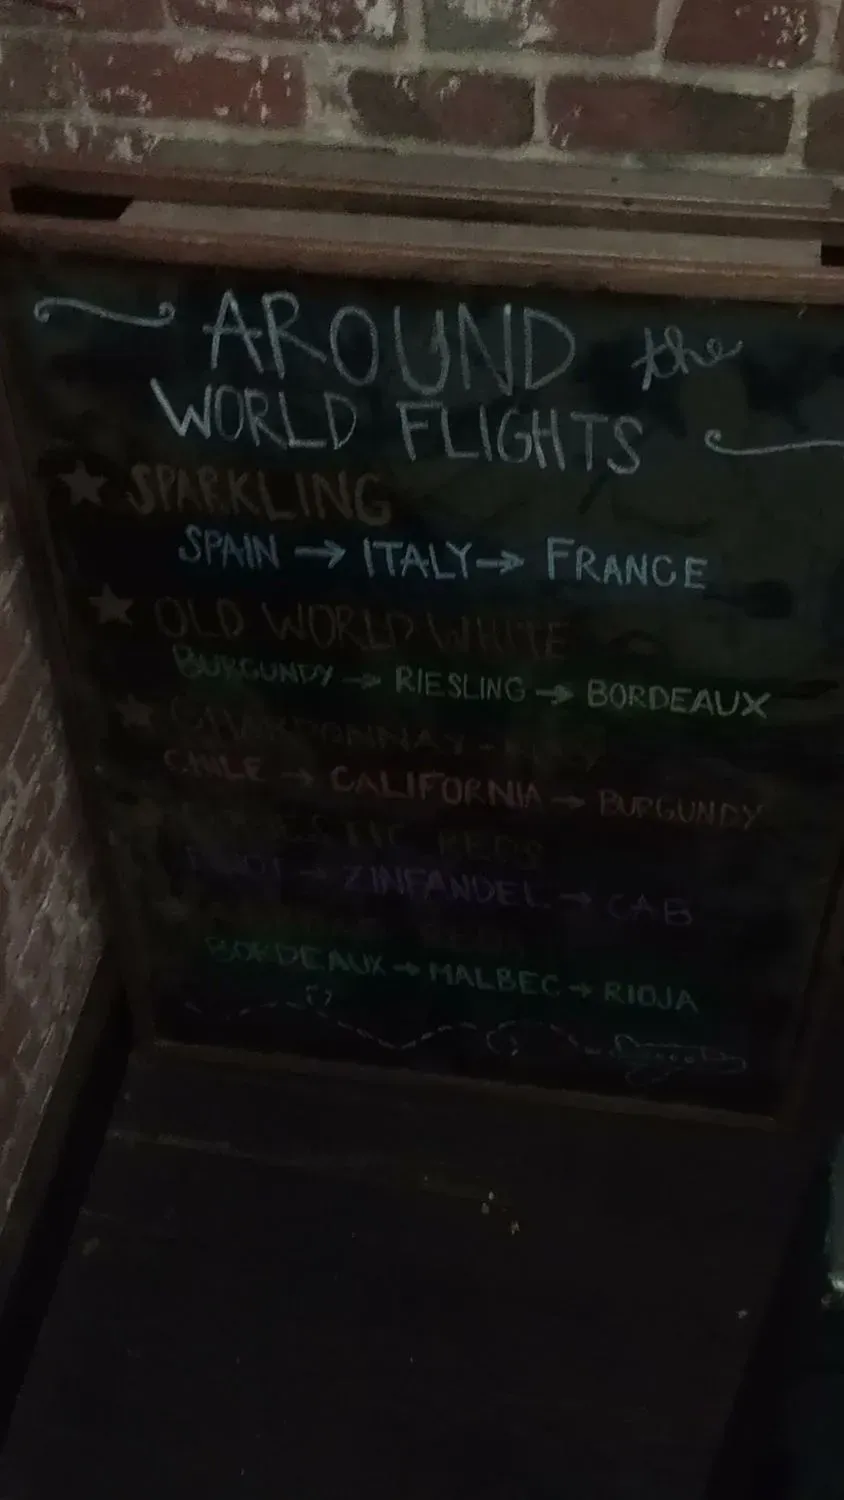 AROUND the
WORLD FLIGHTS
SPARKLING
SPAIN → ITALY → FRANCE
OLD WORLD WHITE
BURGUNDY → RIESLING → BORDEAUX
CHARDONNAY -
CHILE → CALIFORNIA → BURGUNDY
REDS
→ ZINFANDEL → CAB
BORDEAUX → MALBEC → RIOJA